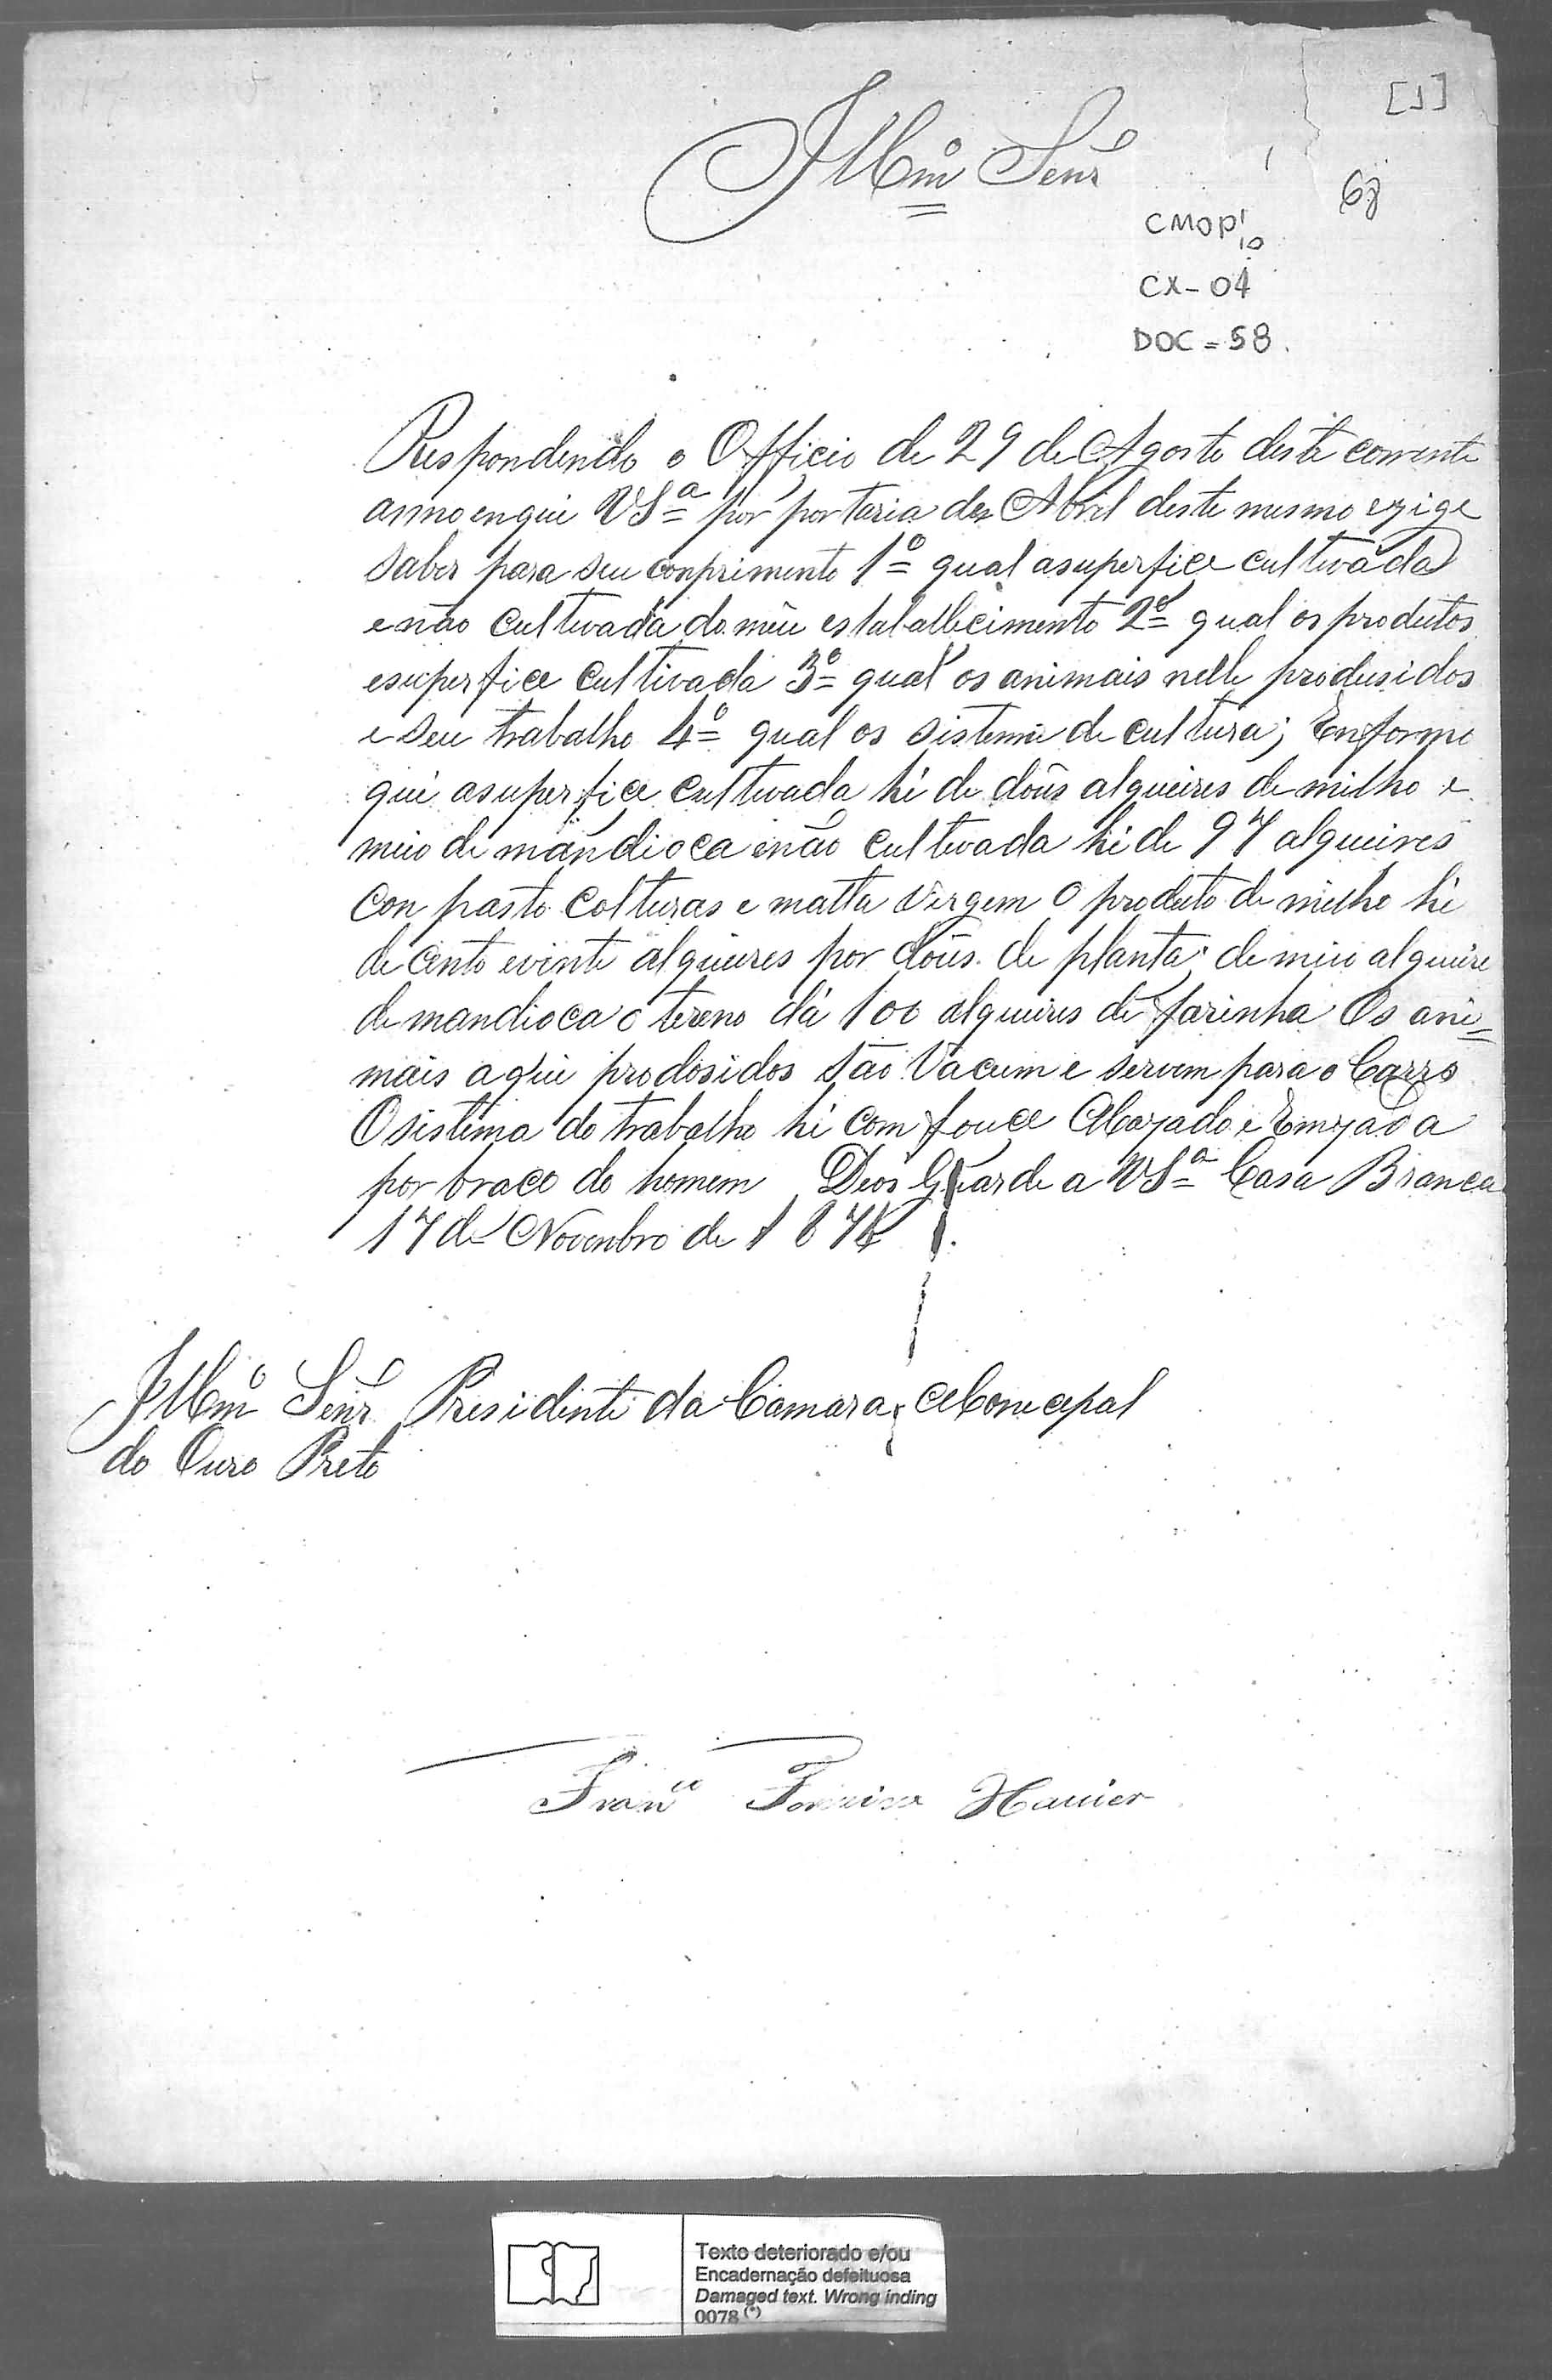 [1]
Illmº Senr
68
CMOP 1/10
CX-04
DOC=58.
Respondendo o Officio de 29 de Agosto deste corrente
anno enque VSª por portaria de Abril deste mesmo exige
saber para seu conprimento 1º qual asuperfice cultivada
enão cultivada do meu estaballecimento 2º qual os produtos
esuperfice cultivada 3º qual os animais nelle produsidos
e seu trabalho 4º qual os sistema de cultura; Enformo
que asuperfice cultivada hé de dous alqueires de milho e
meio de mandioca enão cultivada hé de 97 alqueires
con pasto colturas e matta virgem O produto de milho hé
de cento evinte alqueires por dous de planta; de meio alqueire
de mandioca o tereno dá 100 alqueires de farinha Os ani=
mais aqui prodosidos são Vacum e servem para o Carro
O sistema do trabalho hé com fouce Maxado e Emxada
por braco do homem Deos Guarde a VSª Casa Branca
17 de Novenbro de
Illmº Senr Presidente da Camara Monicipal
do Ouro Preto
Franco Ferreira Xavier
Texto deteriorado e/ou
Encadernação defeituosa
Damaged text. Wrong inding
0078 (*)